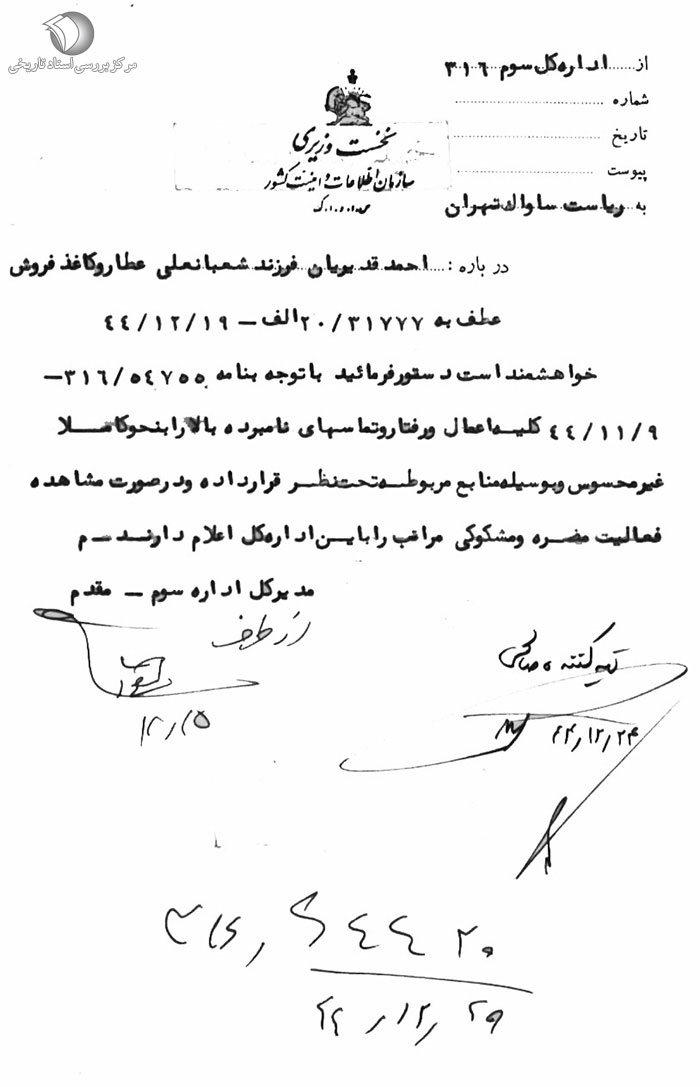 مرکز بررسی اسناد تاریخی
از ..... اداره کل سوم ۳۱۶
شماره
تاریخ
پیوست
به ریاست ساواك تهران
نخست وزیری
سازمان اطلاعات و امنیت کشور
س.ا.و.ا.ک
درباره : احمد قدیریان فرزند شعبانعلی عطار و کاغذ فروش
عطف به ۲۰/۳۱۷۷۷ الف – ۴۴/۱۲/۱۹
خواهشمند است دستور فرمائید با توجه بنامه ۳۱۶/۵۴۷۵۵ –
۴۴/۱۱/۹ کلیه اعمال و رفتار و تماسهای نامبرده بالا را بنحو کاملا
غیر محسوس و بوسیله منابع مربوطه تحت نظر قرار داده و در صورت مشاهده
فعالیت مضره و مشکوکی مراتب را باین اداره کل اعلام دارند – م
مدیر کل اداره سوم – مقدم
از طرف
تهیه کننده صالحی
۴۴/۱۲/۲۴
۱۲/۲۵
۴۴/۱۲/۲۹